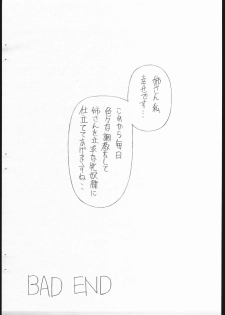 姉さん私
幸せです…
これから毎日
色々な調教をして
姉さんを立派な牝奴隷に
仕立ててあげますね‥
BAD END